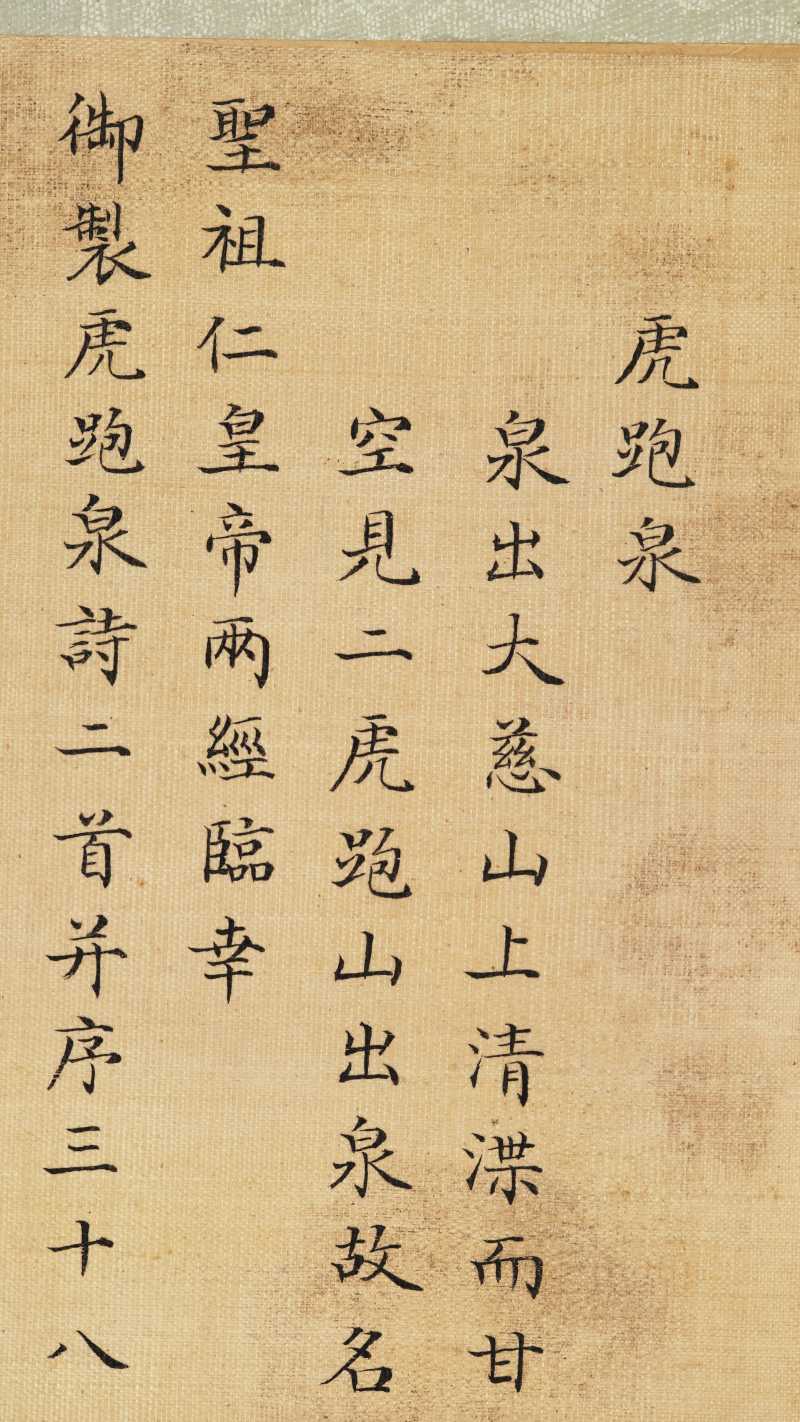 虎跑泉
泉出大慈山上清渫而甘
空見二虎跑山出泉故名
聖祖仁皇帝兩經臨幸
御製虎跑泉詩二首并序三十八